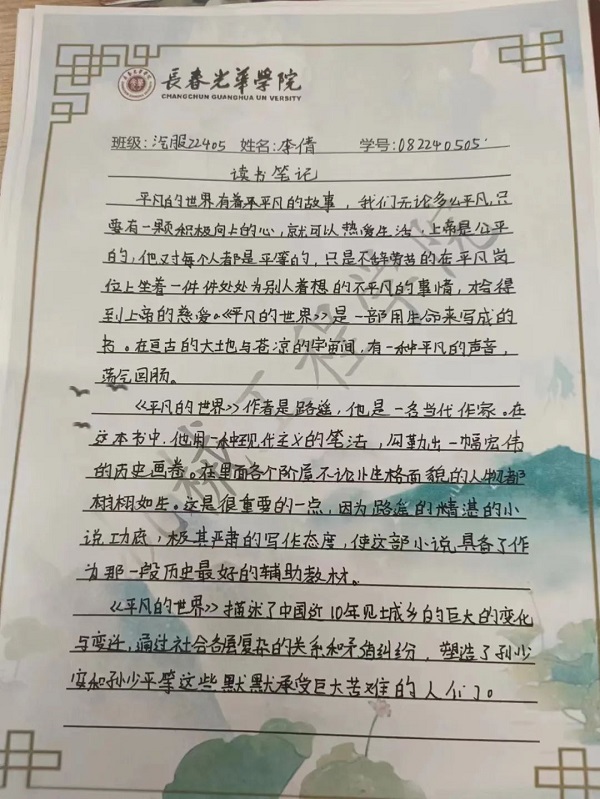 長春光華學院
CHANGCHUN GUANGHUA UN VERSITY
班级: 汽服22405 姓名: 李倩 学号: 082240505
读书笔记
平凡的世界有着不平凡的故事，我们无论多么平凡,只
要有一颗积极向上的心，就可以热爱生活，上帝是公平
的,他对每个人都是平等的,只是不辞劳苦的在平凡岗
位上坐着一件件处处为别人着想的不平凡的事情，才会得
到上帝的慈爱。《平凡的世界》是一部用生命来写成的
书。在亘古的大地与苍凉的宇宙间,有一种平凡的声音，
荡气回肠。
《平凡的世界》作者是路遥，他是一名当代作家。在
这本书中,他用一种现代主义的笔法，勾勒出一幅宏伟
的历史画卷，在里面各个阶层不论性格面貌的人物都
栩栩如生。这是很重要的一点，因为路遥的精湛的小
说功底，极其严肃的写作态度，使这部小说具备了作
为那一段历史最好的辅助教材。
《平凡的世界》描述了中国近10年见城乡的巨大的变化
与变迁，通过社会各层复杂的关系和矛盾纠纷，塑造了孙少
安和孙少平等这些默默承受巨大苦难的人们。
机械工程学院